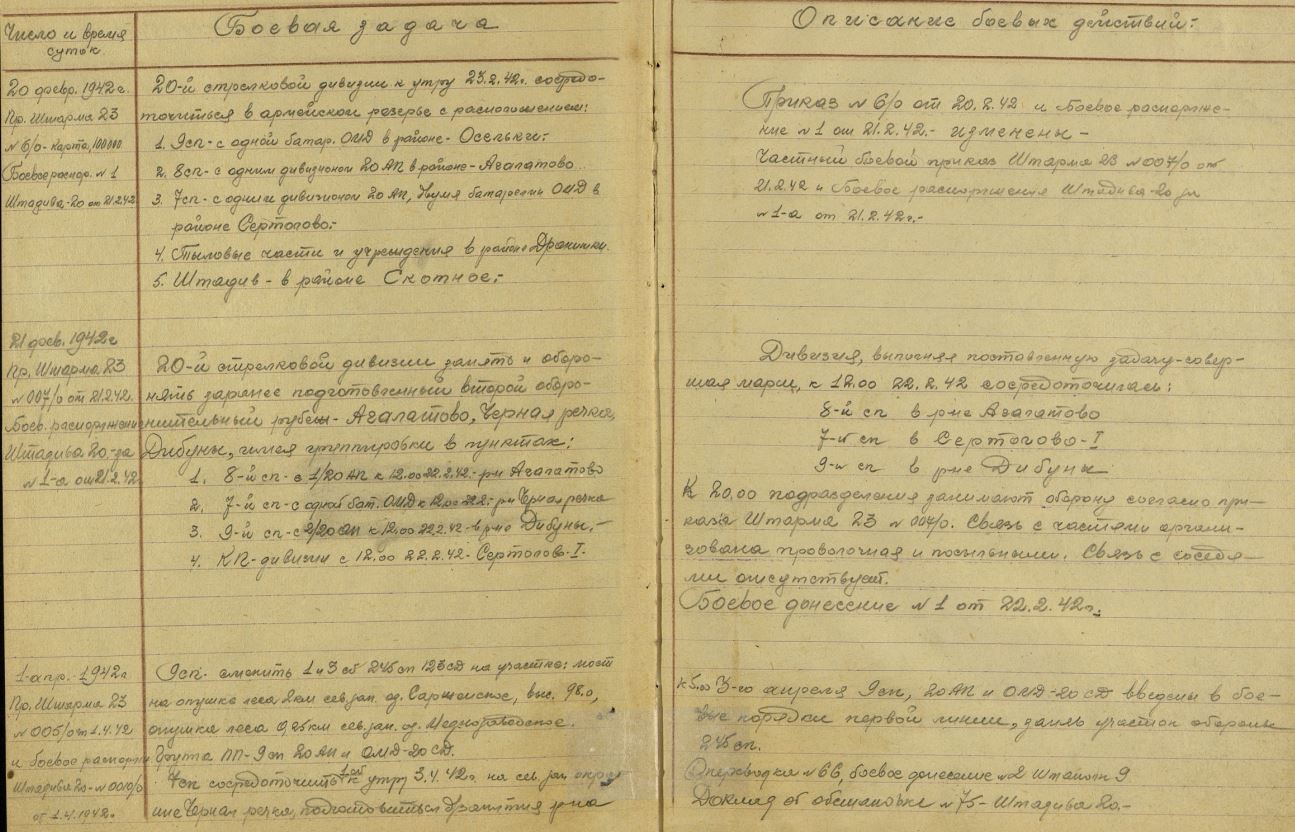 Число и время
суток
Боевая задача
20 февр. 1942 г.
Пр. Штарма 23
№ 6/0 - карта, 100000
Боевое распор. № 1
Штадива-20 от 21.2.42
20-й стрелковой дивизии к утру 23.2.42г. сосредо-
точиться в армейском резерве с расположением:
1. 9сп - с одной батар. ОМД в районе - Осельки:-
2. 8сп - с одним дивизионом 20 АП в районе - Агалатово
3. 7сп - с одним дивизионом 20 АП, двумя батареями ОМД в
районе Сертолово:-
4. Тыловые части и учреждения в районе Дранишки
5. Штадив - в районе Скотное:-
21 фев. 1942 г
Пр. Штарма 23
№ 007/0 от 21.2.42.
Боев. распоряжение
Штадива 20
№ 1-а от 21.2.42
20-й стрелковой дивизии занять и оборо-
нять заранее подготовленный второй оборо-
нительный рубеж - Агалатово, Черная речка,
Дибуны, имея группировки в пунктах:
1. 8-й сп - с 1/20 АП к 12.00 22.2.42 - р-н Агалатово
2. 7-й сп - с одной бат. ОМД к 12.00 22.2. - р-н Черная речка
3. 9-й сп - с 2/20 АП к 12.00 22.2.42 - в р-не Дибуны.-
4. КП - дивизии с 12.00 22.2.42 - Сертолово-I.-
1-апр. - 1942 г
Пр. Штарма 23
№ 005/0 от 1.4.42
и боевое распоряж.
Штадива 20 - № 0010/0
от 1.4.1942г.
9сп - сменить 1 и 3 сб 245 сп 123 СД на участке: мост
на опушке леса 2км сев.зап. од. Каменское, выс. 98.0,
опушка леса 0,25км сев.зап. од.
Группа ПП - 9 сп 20 АП и ОМД - 20 СД.
7сп сосредоточить к утру 3.4.42г. на сев. зап. окра-
ине Черная речка, подготовиться занятия р-на
Описание боевых действий:-
Приказ № 6/0 от 20.2.42 и Боевое распоряже-
ние № 1 от 21.2.42.- изменены -
Частный боевой приказ Штарма 23 № 007/0 от
21.2.42 и Боевое распоряжения Штадива-20
№ 1-а от 21.2.42г.-
Дивизия, выполняя поставленную задачу - совер-
шая марш, к 12.00 22.2.42 сосредоточилась:
8-й сп в р-не Агалатово
7-й сп в Сертолово-I
9-й сп в р-не Дибуны
К 20.00 подразделения занимают оборону согласно при-
каза Штарма 23 № 007/0. Связь с частями органи-
зована проволочная и посыльными. Связь с соседя-
ми отсутствует.
Боевое донесение № 1 от 22.2.42г.
к 5.00 3-го апреля 9сп, 20 АП и ОМД - 20 СД введены в бое-
вые порядки первой линии, заняв участок обороны
245 сп.
Оперсводка № 66, боевое донесение № 2
Доклад об обстановке № 75 - Штадива 20.-